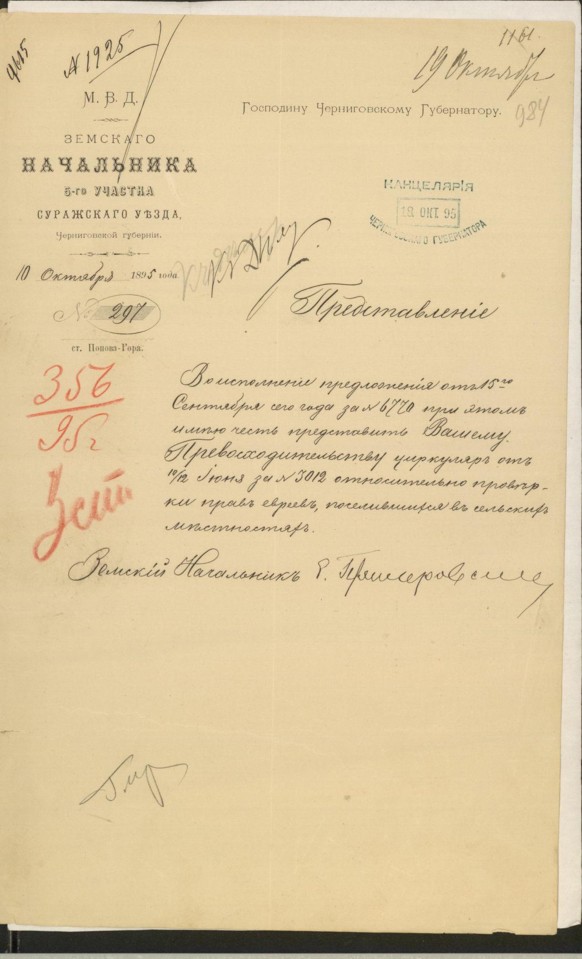 1161.
9615
№ 1925
19 Октября
984
М. В. Д.
ЗЕМСКАГО
НАЧАЛЬНИКА
5-го УЧАСТКА
СУРАЖСКАГО УѢЗДА,
Черниговской губернии.
10 Октября 1895 года.
№ 297
ст. Попова-Гора.
Господину Черниговскому Губернатору.
КАНЦЕЛЯРІЯ
18 ОКТ 95
ЧЕРНИГОВСКАГО ГУБЕРНАТОРА
Представленіе
356
95 г
Во исполненіе предложенія отъ 15го
Сентября сего года за № 6770 при этомъ
имѣю честь представить Вашему
Превосходительству циркуляръ отъ
10/12 Іюня за № 3012 относительно провѣр-
ки правъ евреевъ, поселившихся въ сельскихъ
мѣстностяхъ.
Земскій Начальникъ